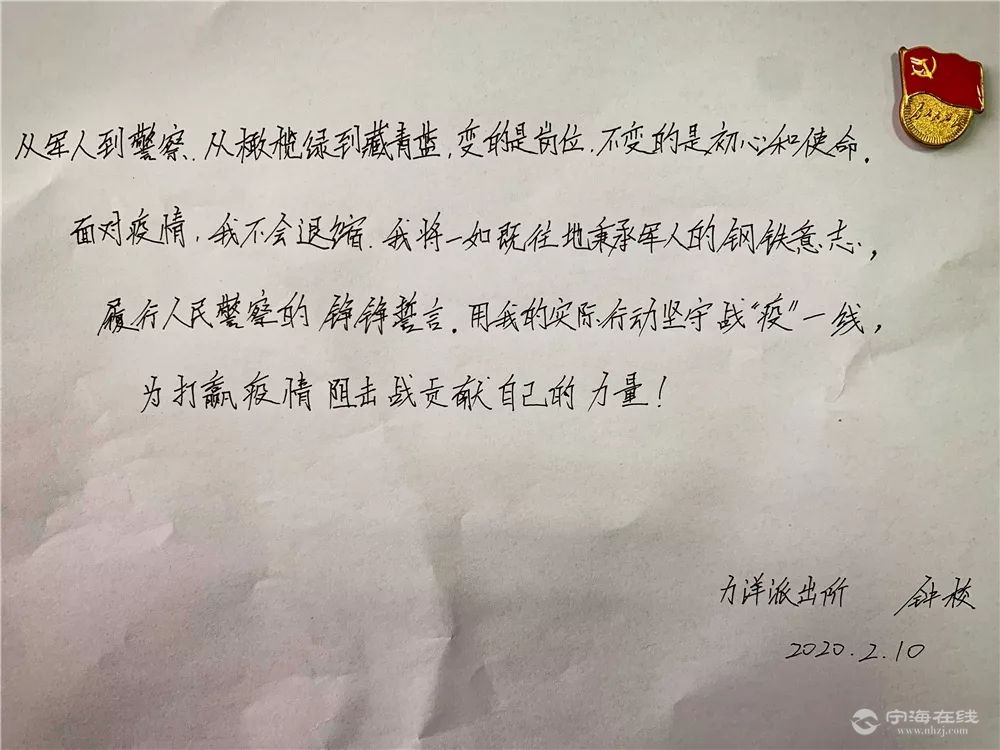 从军人到警察.从橄榄绿到藏青蓝,变的是岗位,不变的是初心和使命.
面对疫情,我不会退缩.我将一如既往地秉承军人的钢铁意志,
履行人民警察的铮铮誓言.用我的实际行动坚守战“疫”一线,
为打赢疫情阻击战贡献自己的力量!
力洋派出所 钟校
2020.2.10
宁海在线
www.nhzj.com